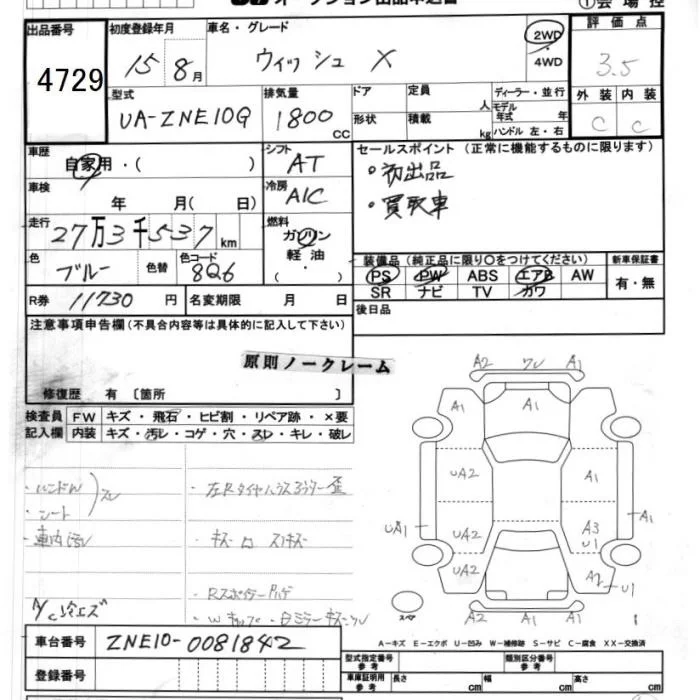 オークション出品申込書
①会場控
出品番号 4729
初度登録年月 15年8月
車名・グレード ウィッシュ X
2WD・4WD
評価点 3.5
型式 UA-ZNE10G
排気量 1800 CC
ドア
形状
定員 人
積載 kg
ディーラー・並行
モデル年式 年
ハンドル 左・右
外装 C
内装 C
車歴 自家用・( )
シフト AT
セールスポイント (正常に機能するものに限ります)
・初出品
・買取車
車検 年 月( 日)
冷房 A/C
走行 27万3千537km
燃料 ガソリン
軽油・
( )
色 ブルー
色替
色コード 8Q6
装備品 (純正品に限り〇をつけてください)
PS PW ABS エアB AW
SR ナビ TV カワ
新車保証書
有・無
R券 11730円
名変期限 月 日
後日品
注意事項申告欄 (不具合内容等は具体的に記入して下さい)
原則ノークレーム
修復歴 有 〔箇所 〕
検査員記入欄
FW キズ・飛石・ヒビ割・リペア跡・×要
内装 キズ・汚レ・コゲ・穴・スレ・キレ・破レ
・ハンドル
・シート
スレ
・車内汚レ
A/C冷エズ
A2 ワレ A1
A1 A1
UA2 A1
UA1 UA2 A3 U1 A1
UA2 A2 U1
A2 A1 A1
スペア
A-キズ E-エクボ U-凹み W-補修跡 S-サビ C-腐食 XX-交換済
車台番号 ZNE10-0081842
登録番号
型式指定番号 参考
類別区分番号 参考
車庫証明用 参考 長さ cm 幅 cm 高さ cm